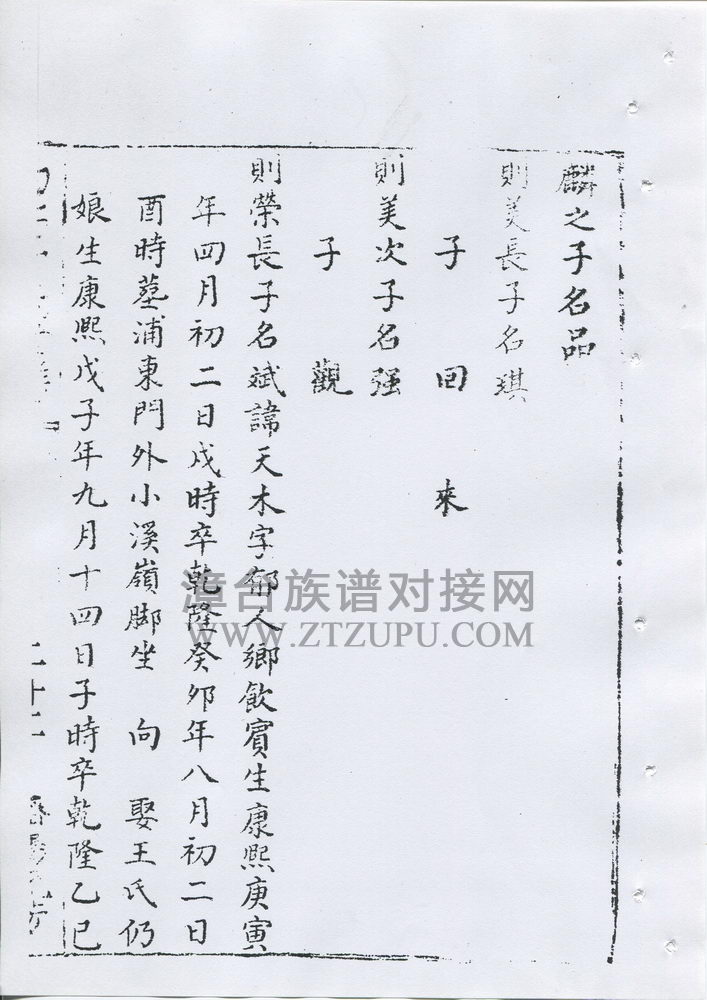 麟之子名品
則美長子名琪
子　回　來
則美次子名强
子　觀
則榮長子名斌諱天木字郁人鄉飲賓生康熙庚寅
年四月初二日戌時卒乾隆癸卯年八月初二日
酉時墓浦東門外小溪嶺脚坐　向　娶王氏仍
娘生康熙戊子年九月十四日子時卒乾隆乙巳
二十二
漳台族谱对接网
WWW.ZTZUPU.COM